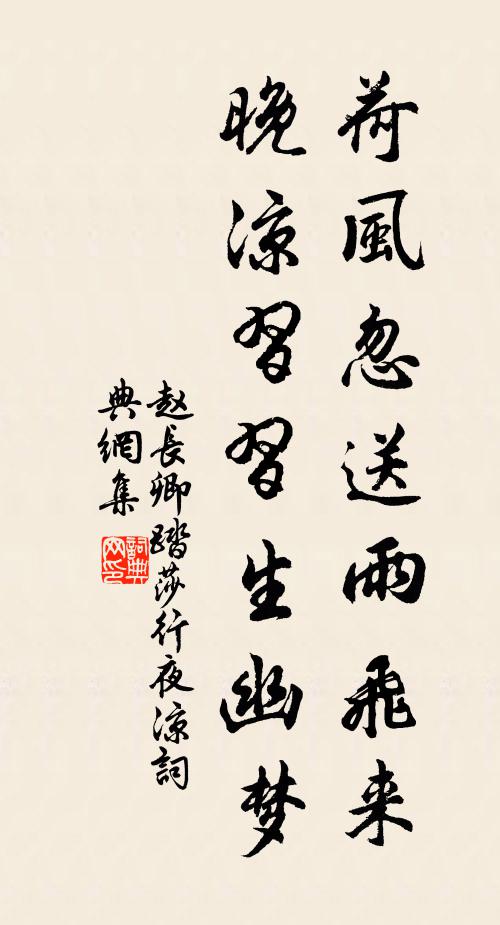 荷風忽送雨飛来
晚凉習習生幽梦
赵長卿踏莎行夜凉詞
典網集
詞典
网印